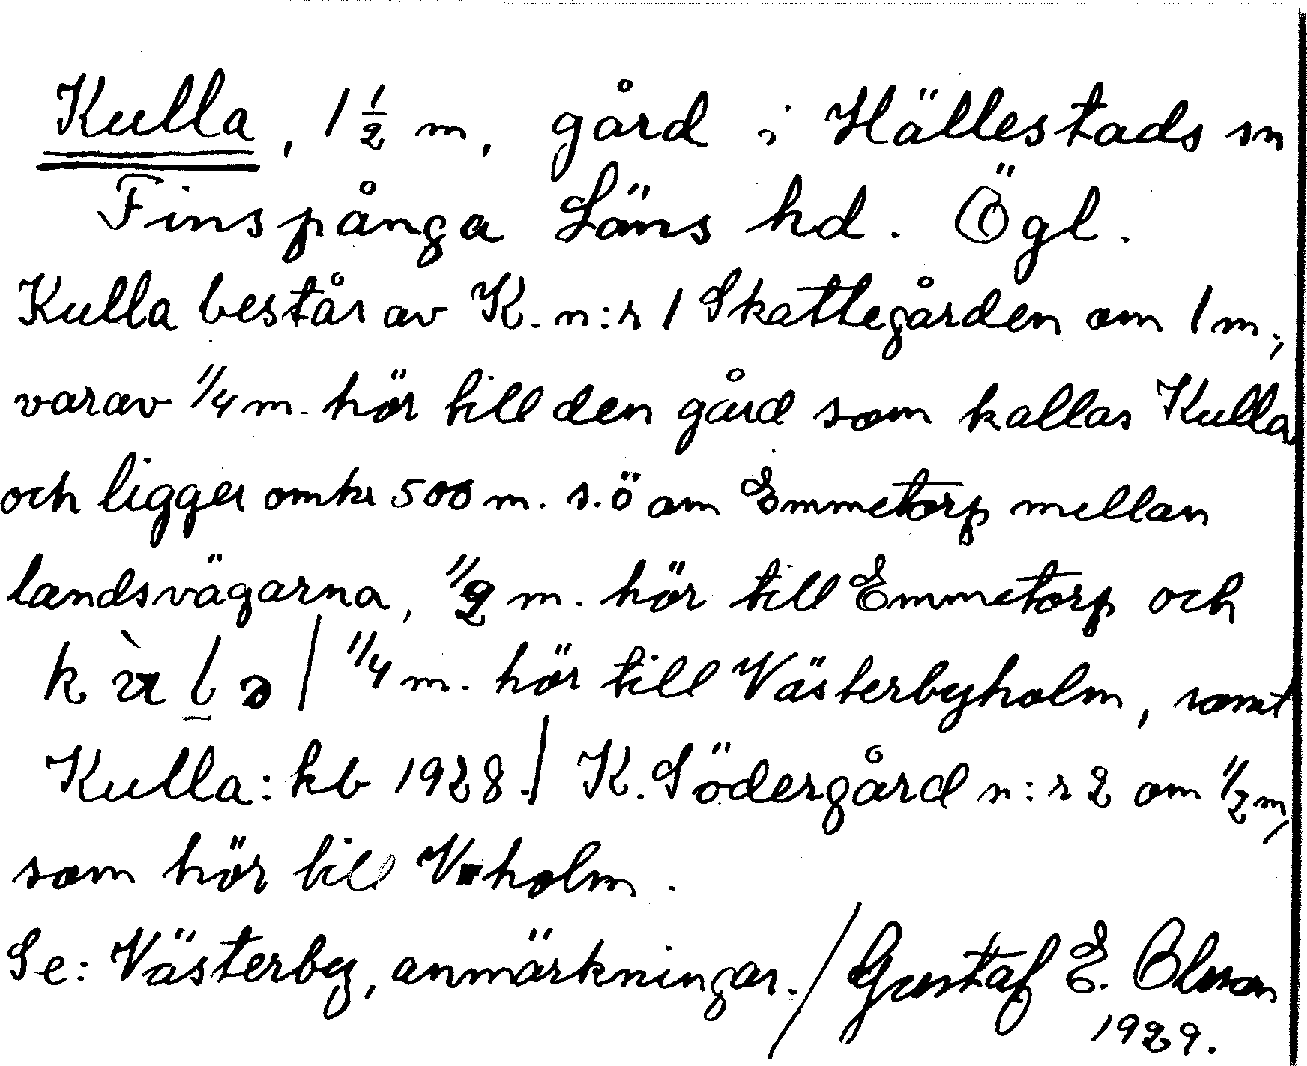 Kulla, 1 1/2 m, gård i Hällestads sn
Finspånga Läns hd. Ögl.
Kulla består av K. n:r 1 Skattegården om 1 m;
varav 1/4 m. hör till den gård som kallas Kulla
och ligger omkr 500 m. s.ö om Emmetorp mellan
landsvägarna, 1/2 m. hör till Emmetorp och
1/4 m. hör till Västerbyholm, samt
Kulla: kb 1928. / K. Södergård n:r 2 om 1/2 m,
som hör till V holm.
Se: Västerby, anmärkningar. / Gustaf E. Olsson
1929.